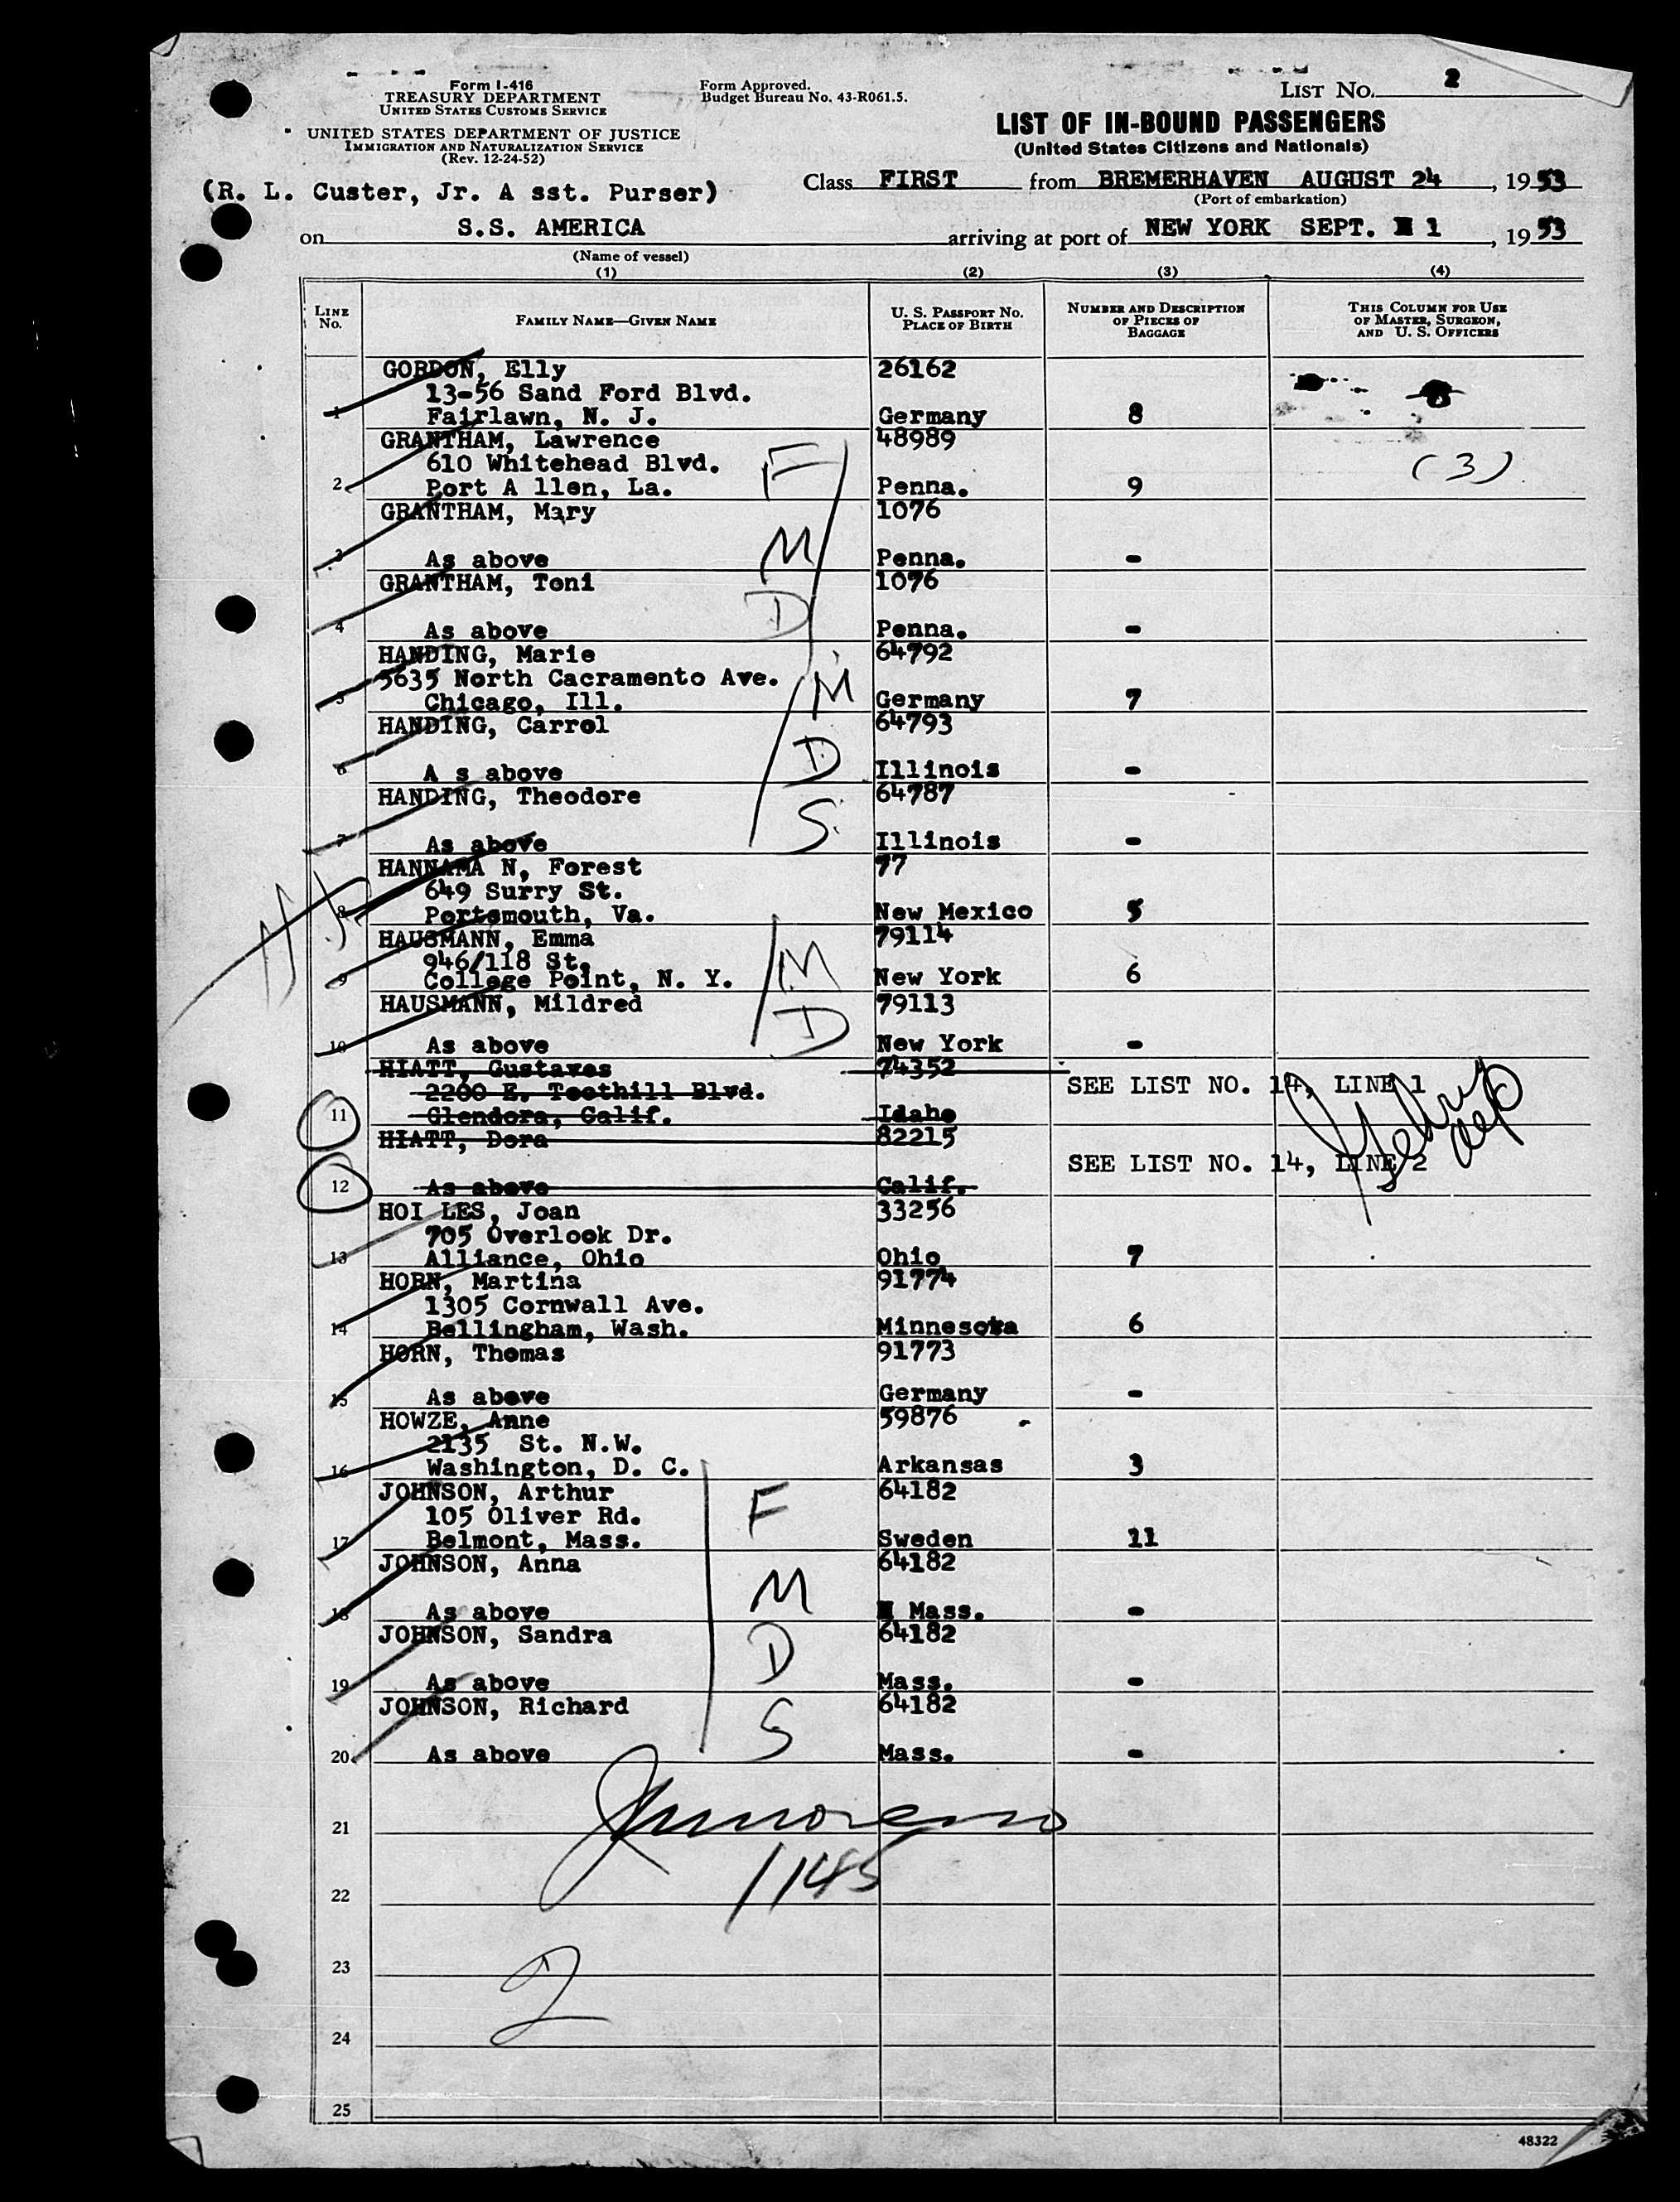 Form I-416
TREASURY DEPARTMENT
UNITED STATES CUSTOMS SERVICE
UNITED STATES DEPARTMENT OF JUSTICE
IMMIGRATION AND NATURALIZATION SERVICE
(Rev. 12-24-52)
Form Approved.
Budget Bureau No. 43-R061.5.
LIST No. 2
LIST OF IN-BOUND PASSENGERS
(United States Citizens and Nationals)
(R. L. Custer, Jr. A sst. Purser)
Class FIRST from BREMERHAVEN AUGUST 24, 1953
(Port of embarkation)
on S.S. AMERICA arriving at port of NEW YORK SEPT. 1, 1953
(Name of vessel)
(1) (2) (3) (4)
LINE No. FAMILY NAME—GIVEN NAME U. S. PASSPORT No. PLACE OF BIRTH NUMBER AND DESCRIPTION OF PIECES OF BAGGAGE THIS COLUMN FOR USE OF MASTER, SURGEON, AND U. S. OFFICERS
GORDON, Elly 26162
13-56 Sand Ford Blvd.
1 Fairlawn, N. J. Germany 8
GRANTHAM, Lawrence 48989
610 Whitehead Blvd. F (3)
2 Port A llen, La. Penna. 9
GRANTHAM, Mary 1076
M
3 As above Penna. -
GRANTHAM, Toni 1076
D
4 As above Penna. -
HANDING, Marie 64792
5635 North Cacramento Ave. M
5 Chicago, Ill. Germany 7
HANDING, Carrol 64793
D
6 A s above Illinois -
HANDING, Theodore 64787
S
7 As above Illinois -
HANNAMA N, Forest 77
649 Surry St.
8 Portsmouth, Va. New Mexico 5
HAUSMANN, Emma 79114
946/118 St. M
9 College Point, N. Y. New York 6
HAUSMANN, Mildred 79113
D
10 As above New York -
HIATT, Gustaves 74352
2200 E. Toothill Blvd. SEE LIST NO. 14, LINE 1
11 Glendora, Calif. Idaho
HIATT, Dora 82215
SEE LIST NO. 14, LINE 2
12 As above Calif.
HOI LES, Joan 33256
705 Overlook Dr.
13 Alliance, Ohio Ohio 7
HORN, Martina 91774
1305 Cornwall Ave.
14 Bellingham, Wash. Minnesota 6
HORN, Thomas 91773
15 As above Germany -
HOWZE, Anne 59876
2135 St. N.W.
16 Washington, D. C. Arkansas 3
JOHNSON, Arthur 64182
105 Oliver Rd. F
17 Belmont, Mass. Sweden 11
JOHNSON, Anna 64182
M
18 As above Mass. -
JOHNSON, Sandra 64182
D
19 As above Mass. -
JOHNSON, Richard 64182
S
20 As above Mass. -
21
1145
22
23
2
24
25
48322